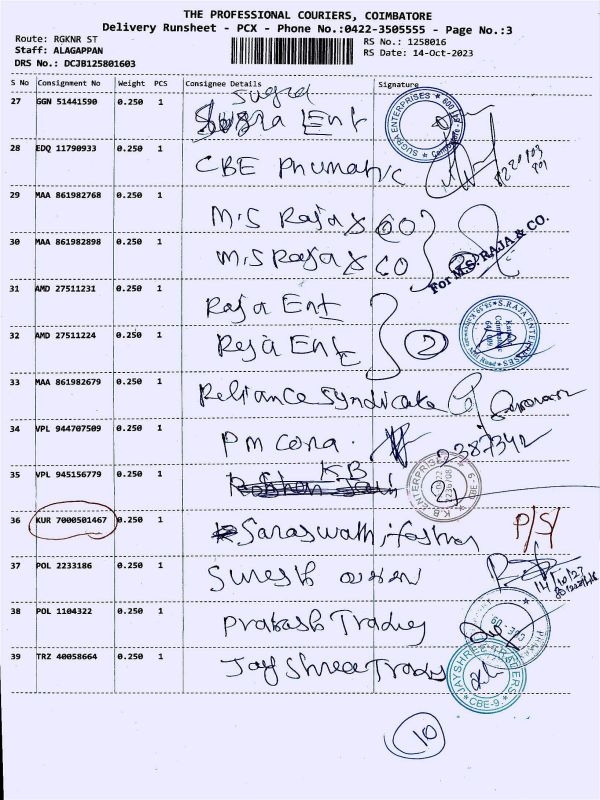 THE PROFESSIONAL COURIERS, COIMBATORE
Delivery Runsheet - PCX - Phone No.:0422-3505555 - Page No.:3
Route: RGKNR ST
Staff: ALAGAPPAN
DRS No.: DCJB125801603
RS No.: 1258016
RS Date: 14-Oct-2023
S No Consignment No Weight PCS Consignee Details Signature
27 GGN 51441590 0.250 1 Sugra Ent
Sugra
SUGRA ENTERPRISES
28 EDQ 11790933 0.250 1 CBE Phumatic
29 MAA 861982768 0.250 1 M.S Raja & CO
30 MAA 861982898 0.250 1 M.S Raja & CO
For M.S. RAJA & CO.
31 AMD 27511231 0.250 1 Raja Ent
32 AMD 27511224 0.250 1 Raja Ent 2
S.RAJA ENTERPRISES
33 MAA 861982679 0.250 1 Reliance Syndicate
34 VPL 944707509 0.250 1 PM Cona. 2387342
35 VPL 945156779 0.250 1 KB
K.B. ENTERPRISES
36 KUR 7000501467 0.250 1 Saraswathi P/S
37 POL 2233186 0.250 1 Suresh
14/10/23
38 POL 1104322 0.250 1 Prakash Trading
39 TRZ 40058664 0.250 1 Jay Shree Trades
JAYSHREE TRADERS
CBE-9.
10